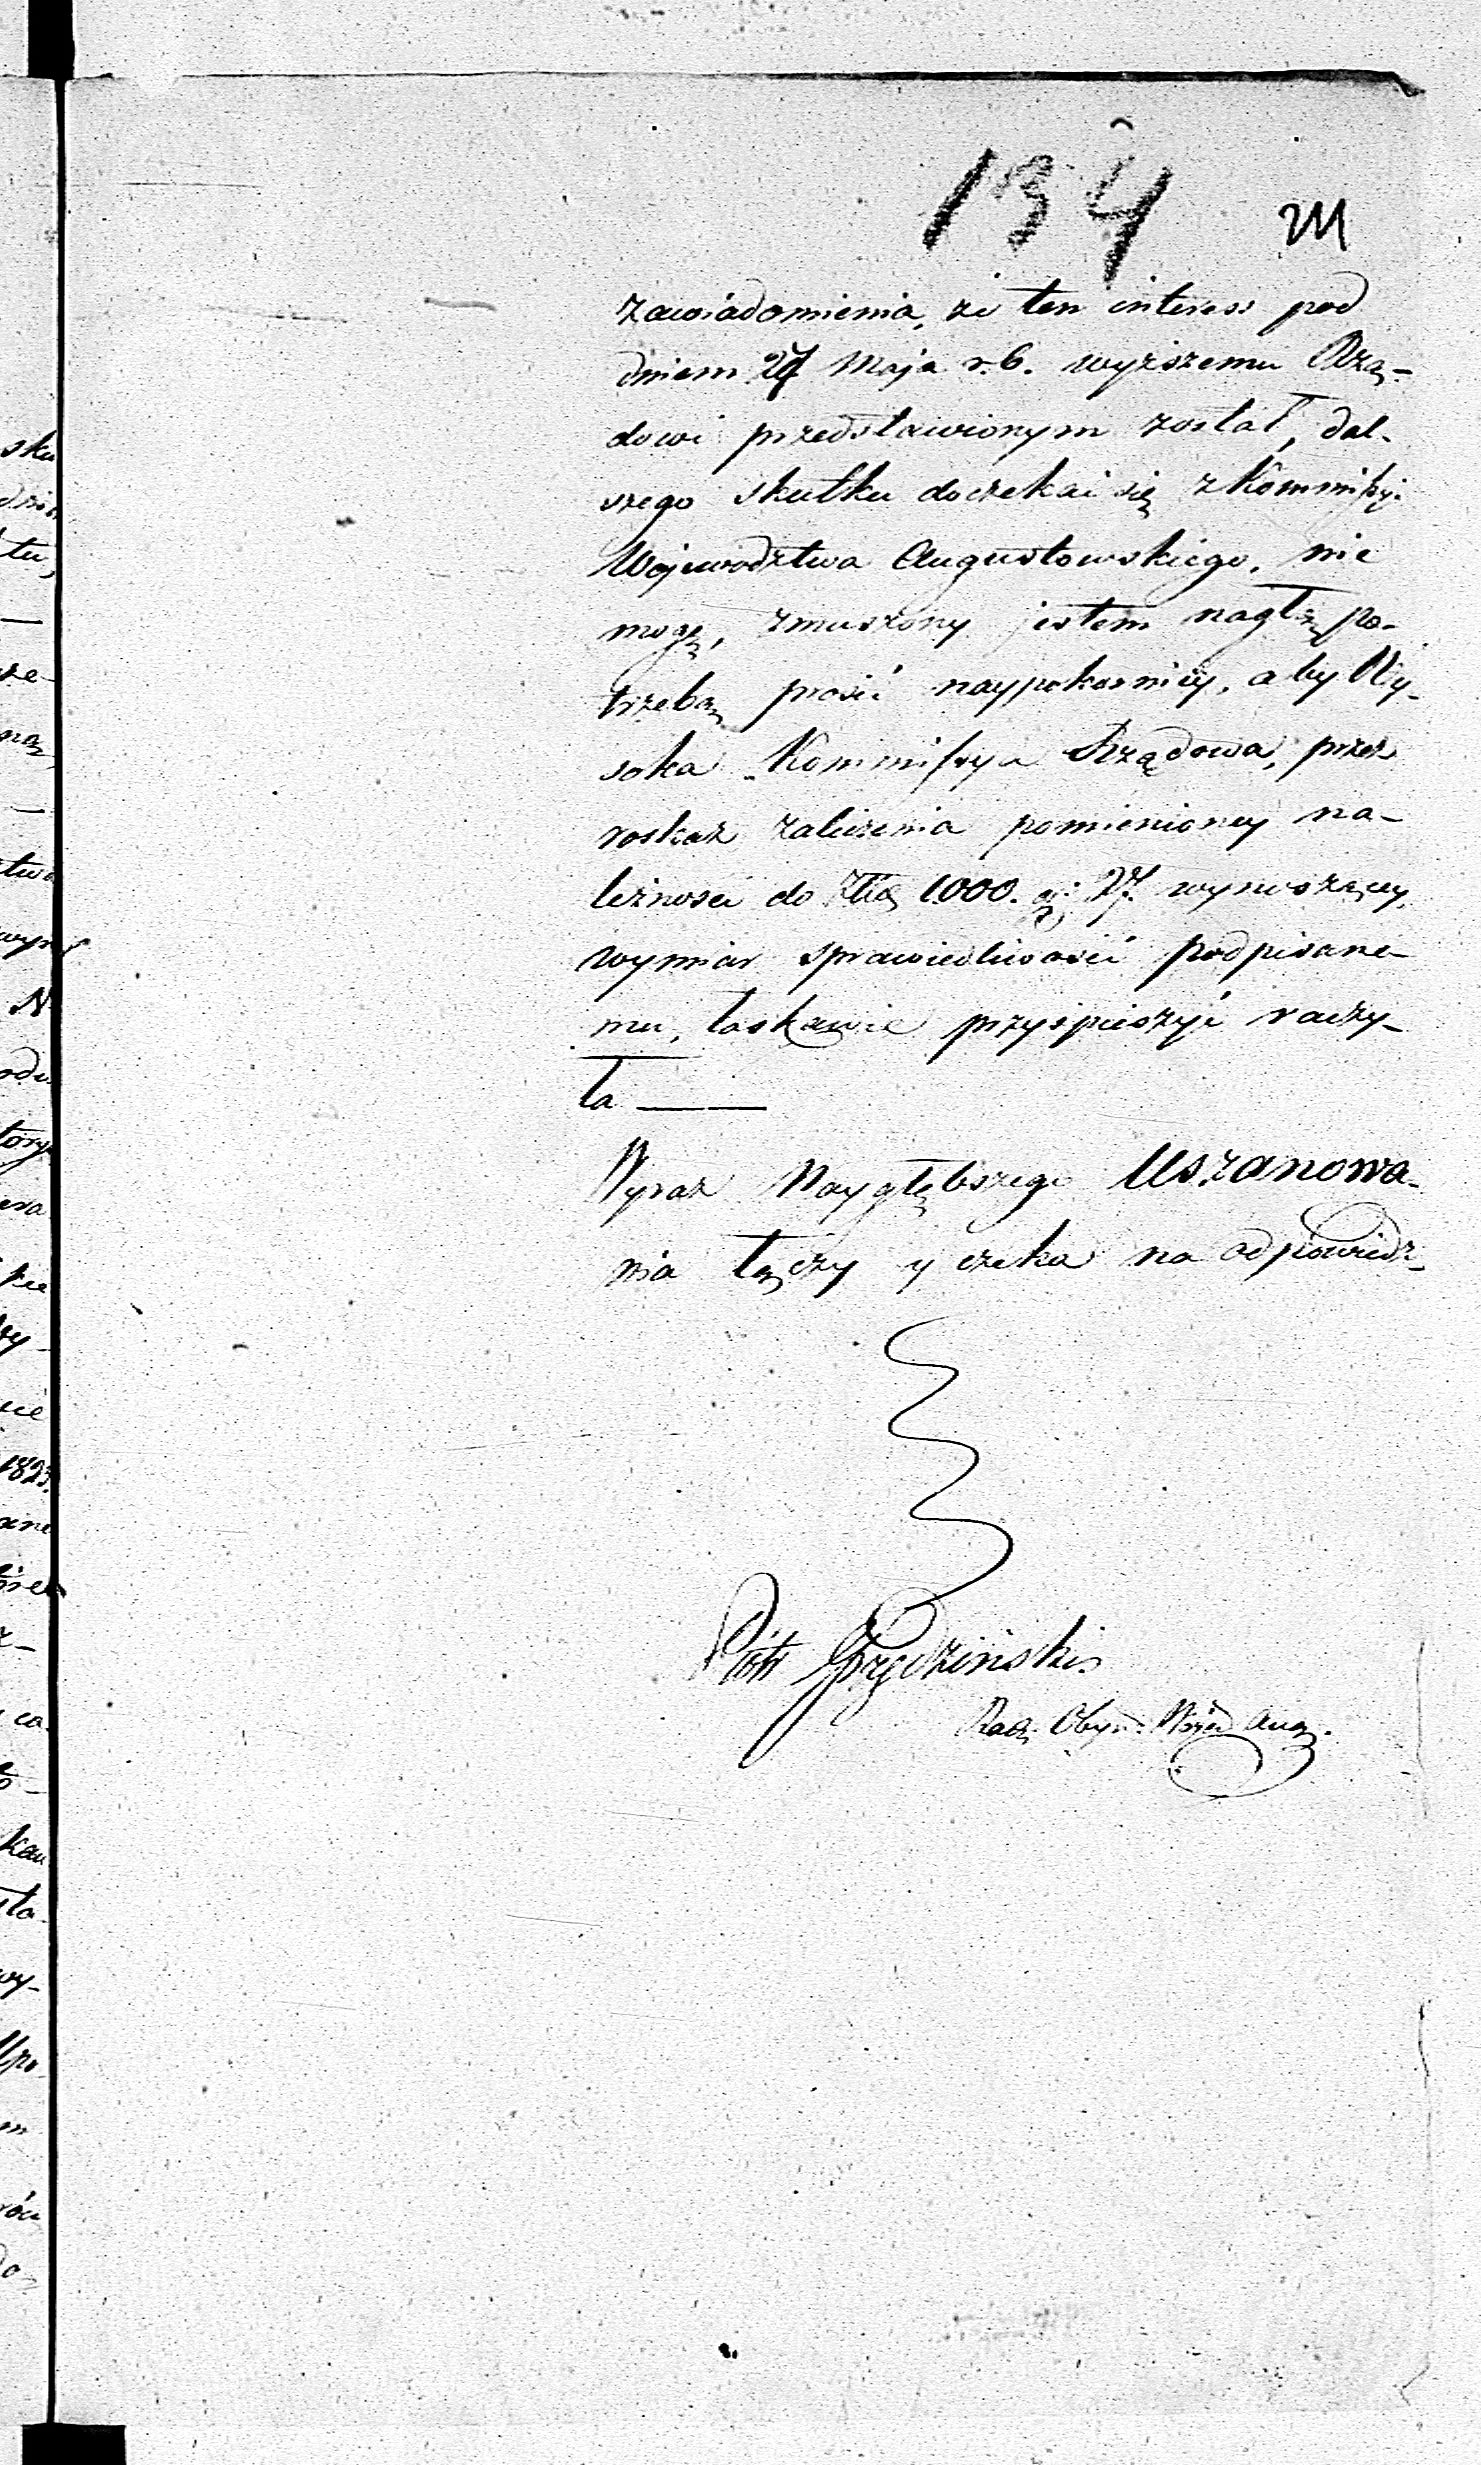 134
zawiadomienia, że ten interess pod
dniem 27 Maja r. b. wyższemu Rzą-
dowi przedstawionym został, dal-
szego skutku doczekać się z Kommissyi
Województwa Augustowskiego, nie
mogę, zmuszony jestem nagłą po-
trzebą prosić naypokorniey, aby Wy-
soka Kommissya Rządowa, przez
roskaz zaliczenia pomienioney na-
leżnosci do Złłą 1000. gr: 27. wynoszącey,
wymiar sprawiedliwości podpisane-
mu, łaskawie przyspieszyć raczy-
ła ——
Wyraz Naygłębszego Uszanowa-
nia łączy y czeka na odpowiedz,
Piotr
Radz. Obyw. Wojew. Aug.
sku
tu,
—
że
ną
—
N
1823.
kie
ca
wy-